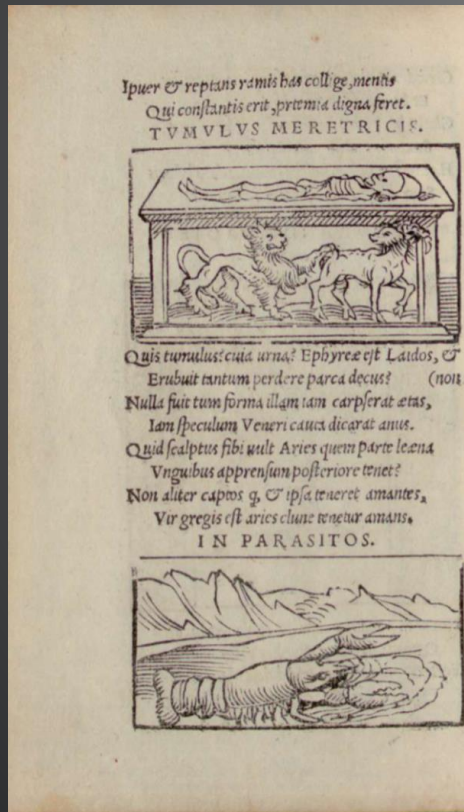 I puer & reptans ramis has collige, mentis
Qui constantis erit, præmia digna feret.
TVMVLVS MERETRICIS.
Quis tumulus? cuia urna? Ephyreæ est Laidos, &
Erubuit tantum perdere parca decus? (non
Nulla fuit tum forma illam iam carpserat ætas,
Iam speculum Veneri cauta dicarat anus.
Quid scalptus sibi uult Aries quem parte leæna
Vnguibus apprensum posteriore tenet?
Non aliter captos q, & ipsa teneret amantes,
Vir gregis est aries clune tenetur amans.
IN PARASITOS.